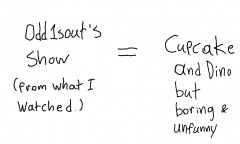 Odd1sout's
Show
(from what I
watched.)
=
Cupcake
and Dino
but
boring &
unfunny